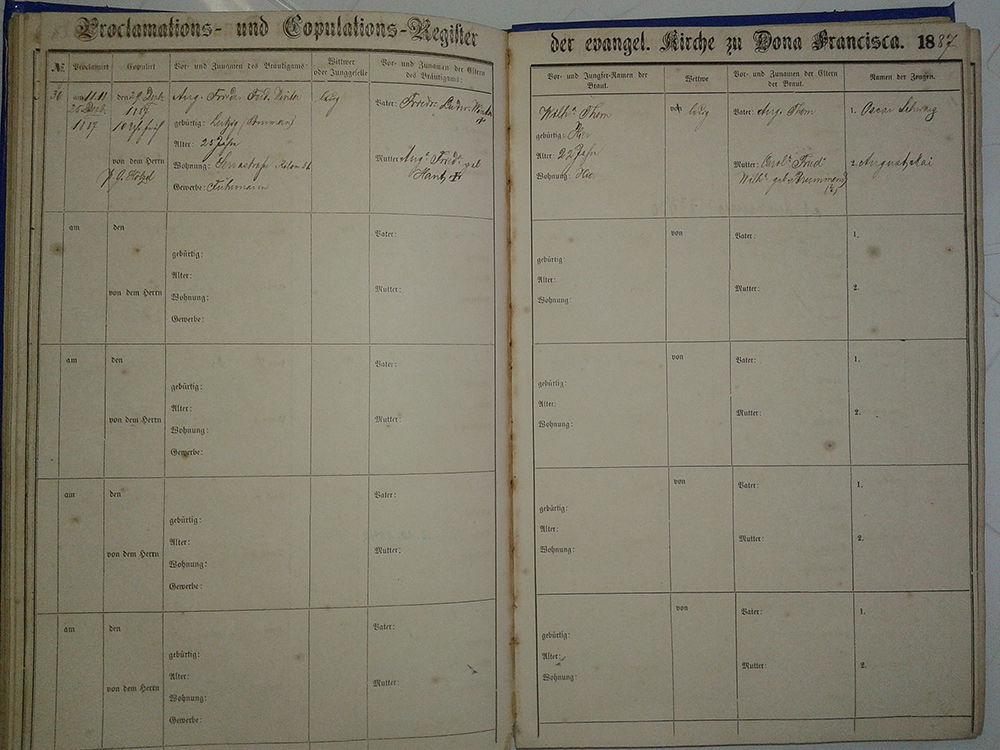 Proclamations- und Copulations-Register
№
Proclamirt
Copulirt
Vor- und Zunamen des Bräutigams:
Wittwer
oder Junggeselle
Vor- und Zunamen der Eltern
des Bräutigams:
30
Aug. Fried. Fried.
ledig
Vater: Friedr.
gebürtig:
10 Uhr früh
Alter: 25 Jahr
von dem Herrn
Wohnung:
Mutter:
P. G. Hölzel
Gewerbe: Fuhrmann
am
den
gebürtig:
Vater:
Alter:
von dem Herrn
Wohnung:
Mutter:
Gewerbe:
am
den
gebürtig:
Vater:
Alter:
von dem Herrn
Wohnung:
Mutter:
Gewerbe:
am
den
gebürtig:
Vater:
Alter:
von dem Herrn
Wohnung:
Mutter:
Gewerbe:
am
den
gebürtig:
Vater:
Alter:
von dem Herrn
Wohnung:
Mutter:
Gewerbe:
der evangel. Kirche zu Dona Francisca. 1887
Vor- und Jungfer-Namen der
Braut.
Wettwe
Vor- und Zunamen der Eltern
der Braut.
Namen der Zeugen.
Wilh. Thom
von ledig
Vater: Aug. Thom
1. Oscar
gebürtig: Hier
Alter: 22 Jahr
Mutter:
2. August
Wohnung: Hier
von
Vater:
1.
gebürtig:
Alter:
Mutter:
2.
Wohnung:
von
Vater:
1.
gebürtig:
Alter:
Mutter:
2.
Wohnung:
von
Vater:
1.
gebürtig:
Alter:
Mutter:
2.
Wohnung:
von
Vater:
1.
gebürtig:
Alter:
Mutter:
2.
Wohnung: